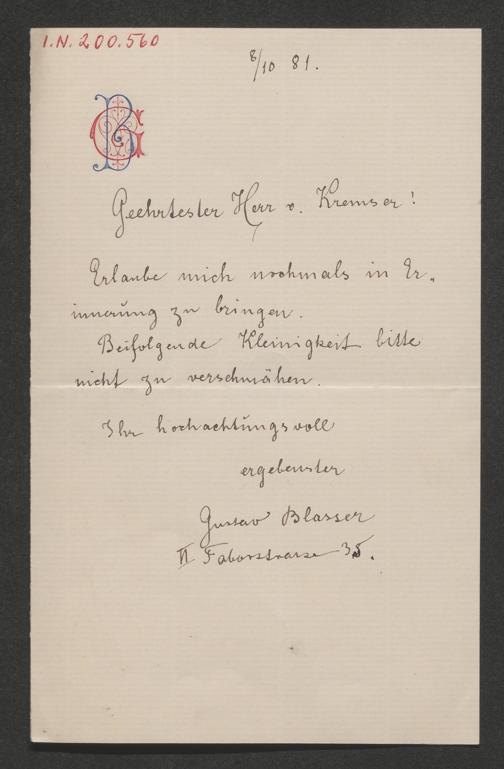 I.N. 200.560
8/10 81.
GB
Geehrtester Herr v. Kremser!
Erlaube mich nochmals in Er-
innerung zu bringen.
Beifolgende Kleinigkeit bitte
nicht zu verschmähen.
Ihr hochachtungsvoll
ergebenster
Gustav Blasser
VI 35.